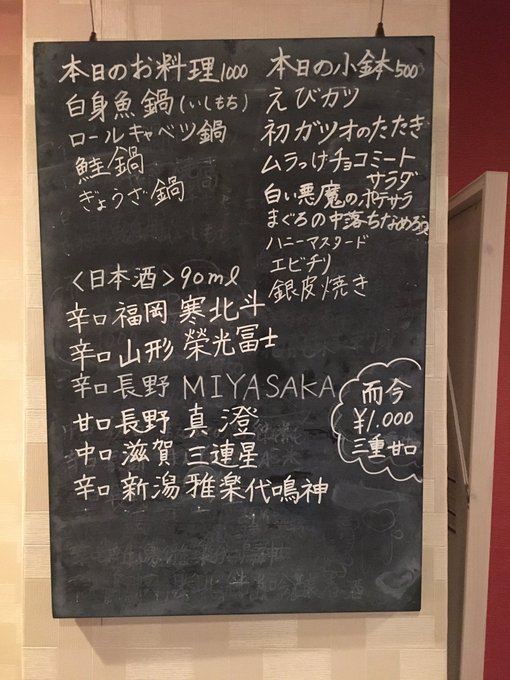 本日のお料理1000
白身魚鍋(いしもち)
ロールキャベツ鍋
鮭鍋
ぎょうざ鍋
本日の小鉢500
えびカツ
初ガツオのたたき
ムラっけチョコミート
サラダ
白い悪魔のポテサラ
まぐろの中落ちなめろう
ハニーマスタード
エビチリ
銀皮焼き
<日本酒>90ml
辛口 福岡 寒北斗
辛口 山形 榮光冨士
辛口 長野 MIYASAKA
甘口 長野 真澄
中口 滋賀 三連星
辛口 新潟 雅楽代鳴神
而今
¥1.000
三重甘口